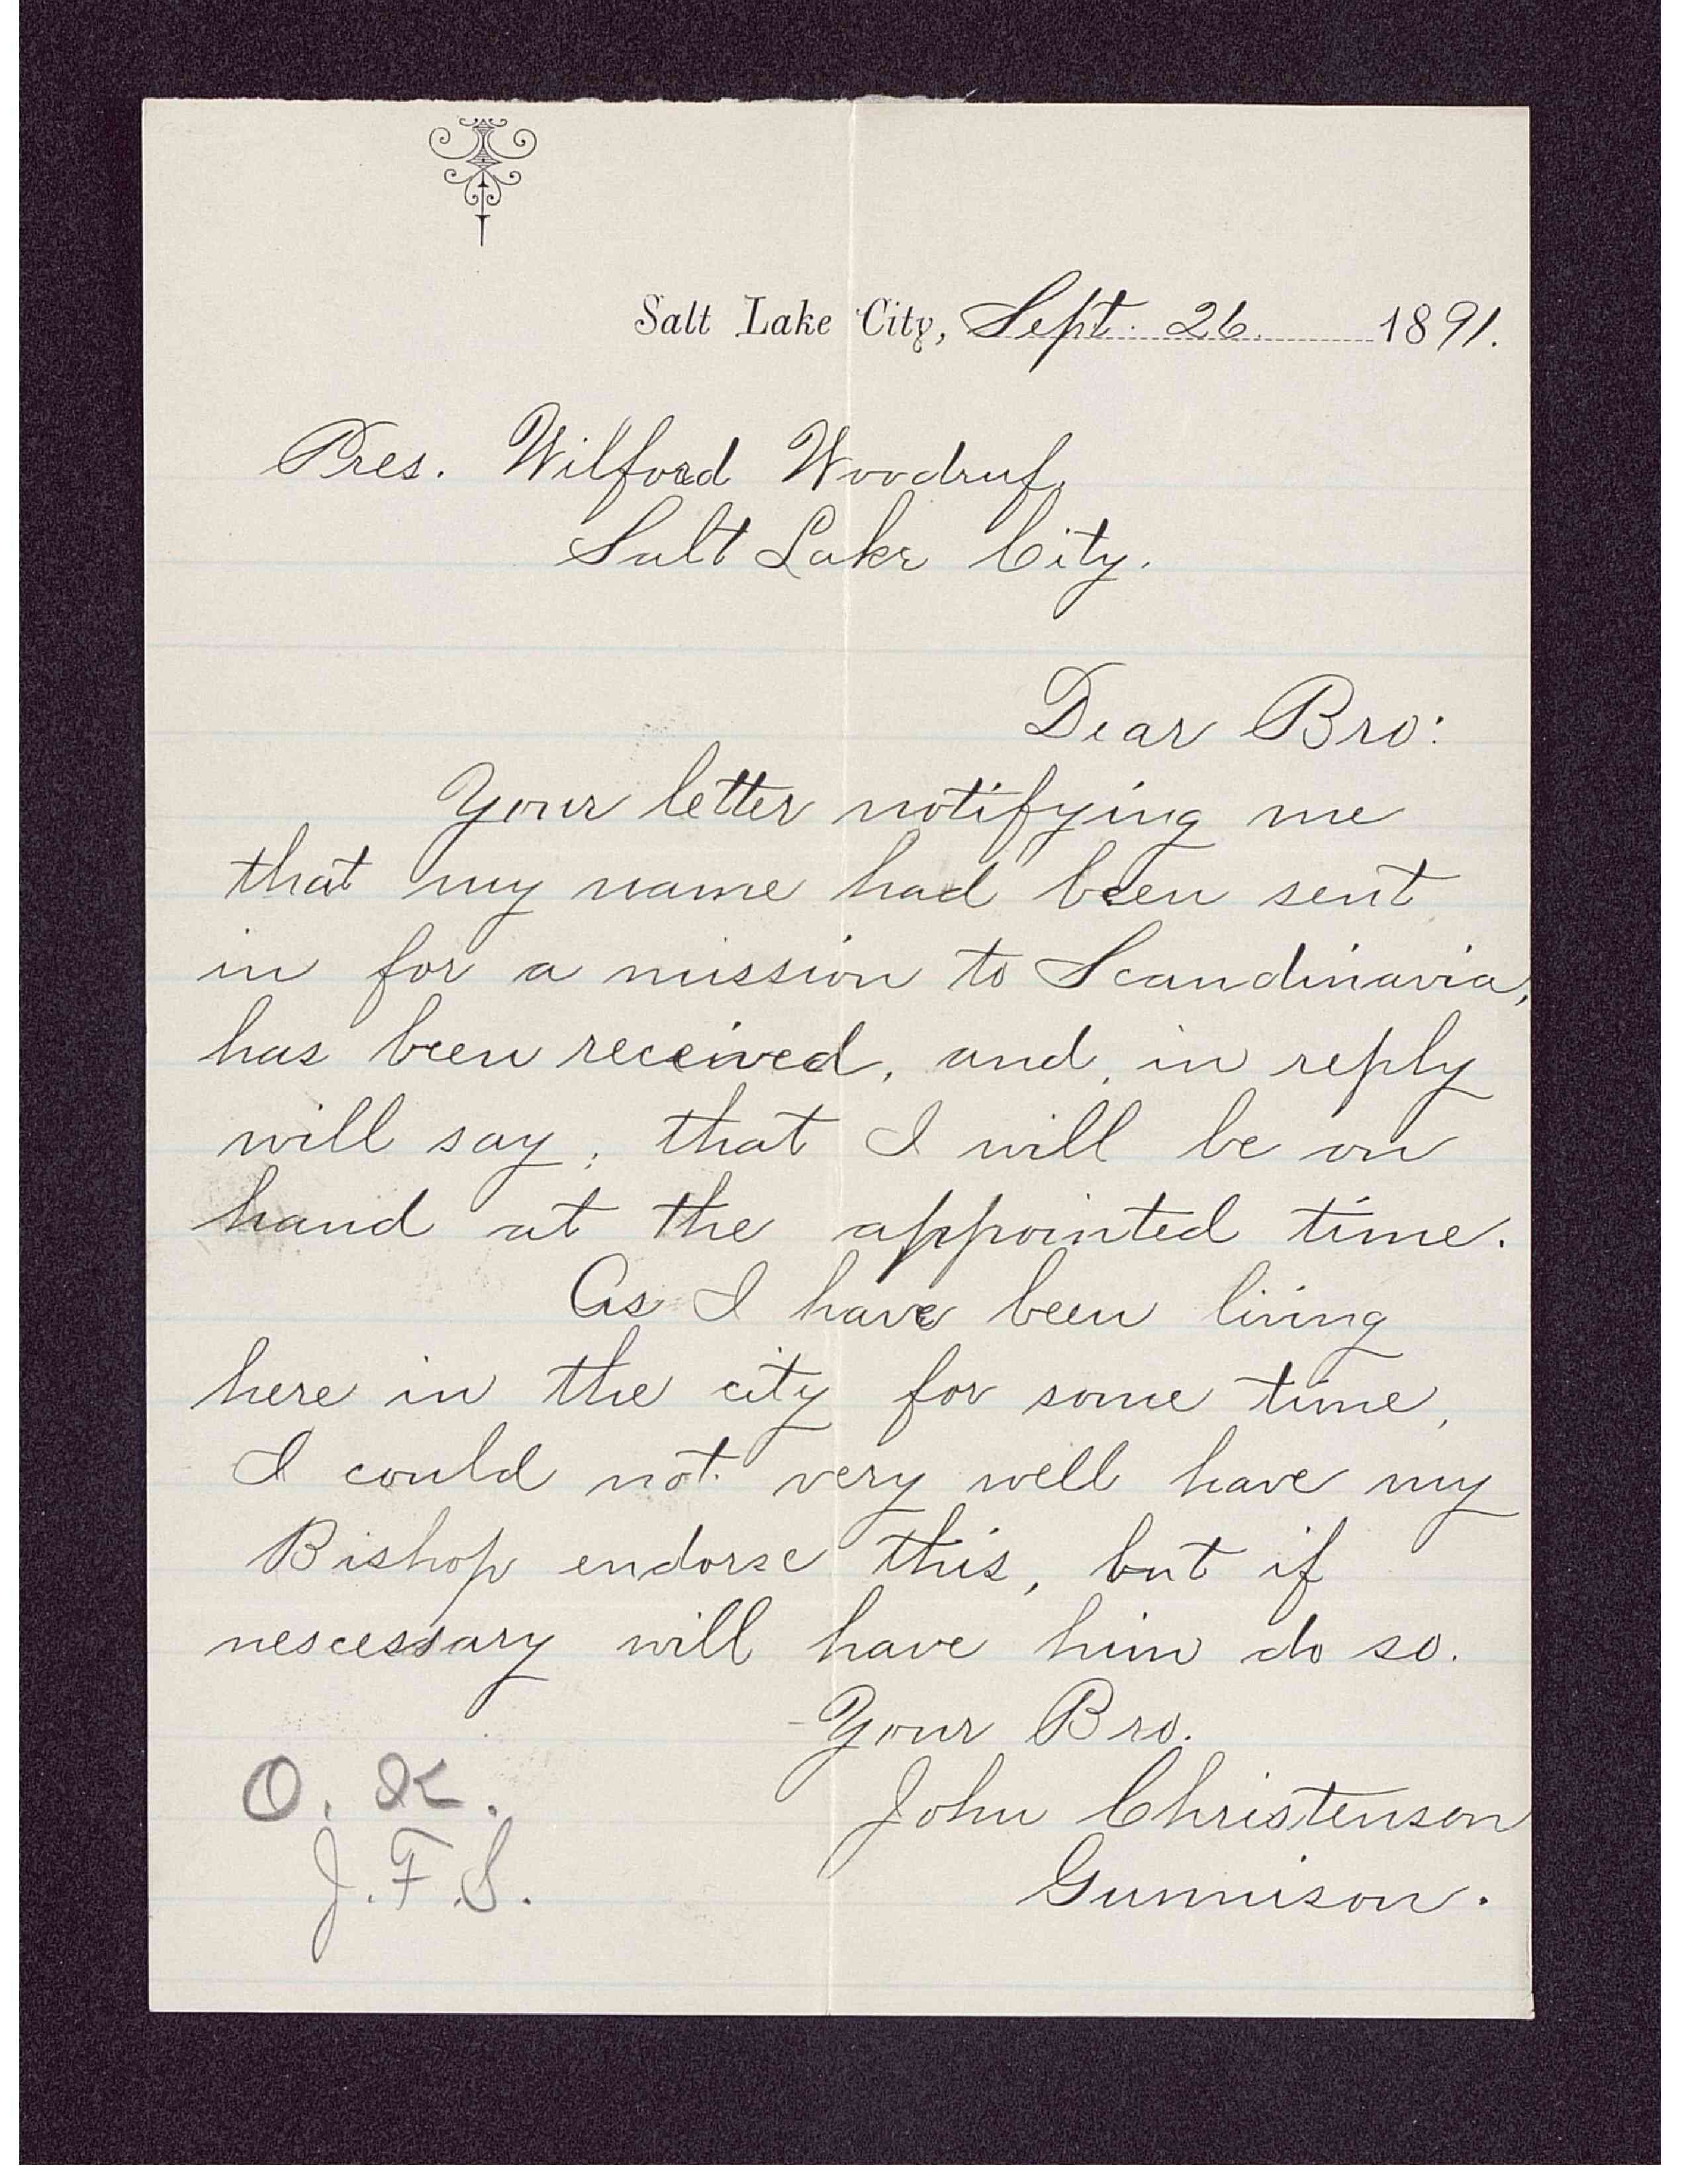 Salt Lake City, Sept. 26. 1891.
Pres. Wilford Woodruf,
Salt Lake City.
Dear Bro:
Your letter notifying me
that my name had been sent
in for a mission to Scandinavia,
has been received, and, in reply
will say, that I will be on
hand at the appointed time.
As I have been living
here in the city for some time,
I could not very well have my
Bishop endorse this, but if
nescessary will have him do so.
Your Bro.
John Christenson
Gunnison.
O. K.
J. F. S.